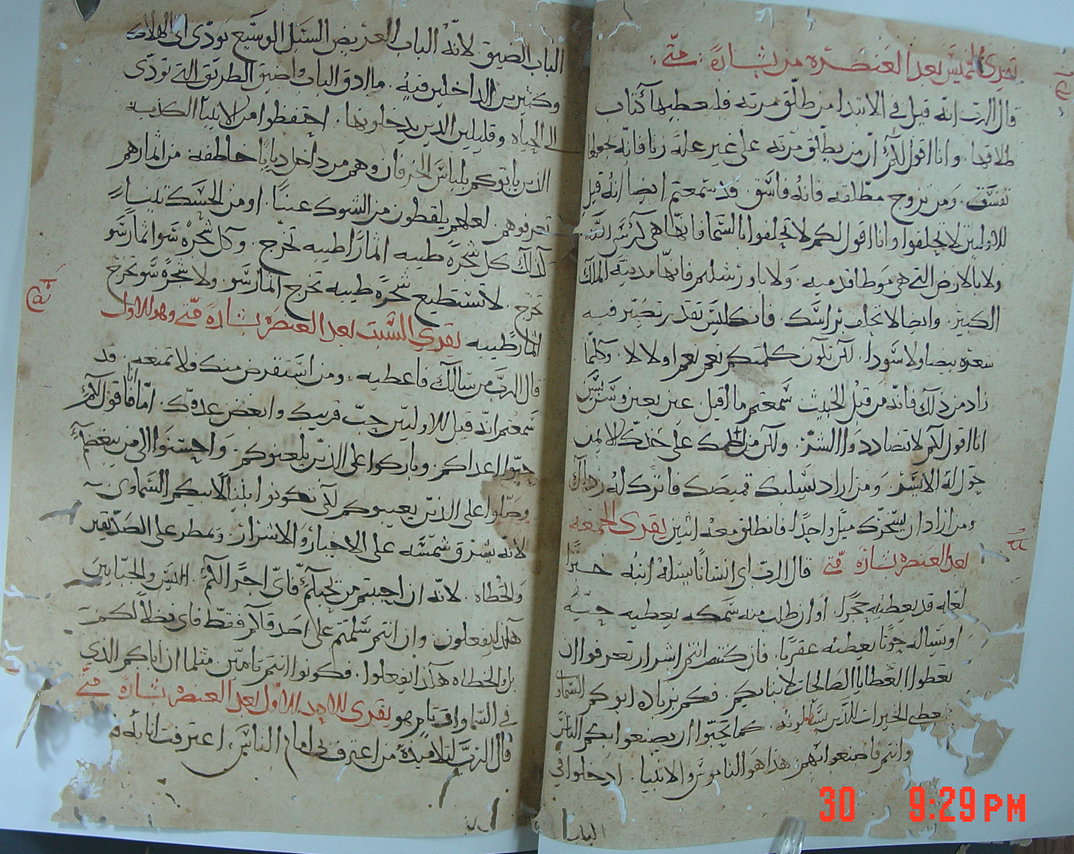 تقرى الخميس بعد العنصره من بشارة متى
قال الرب انه قيل في الابتدا من طلق مرته فليعطيها كتاب
طلاقها . وانا اقول لكم ان من يطلق مرته على غير علة زنا فانه يجعلها
تفسق . ومن يزوج مطلقه فانه فاسق . قد سمعتم ايضا انه قيل
للاولين لا تحلفوا وانا اقول لكم لا تحلفوا بالسما فانها هي كرسي الله
ولا بالارض التي هي موطا قدميه . ولا باورشليم فانها مدينة الملك
الكبير . وايضا لا تحلف براسك . فانك ليس تقدر تصير فيه
شعره بيضا ولا سودا . لكن تكون كلمتكم نعم نعم اولا لا . وكلما
زاد من ذلك فانه من قبل الخبيث سمعتم ما قيل عين بعين وسن بسن
انا اقول لكم لا تضاددوا الشر . ولكن من لطمك على خدك الايمن
حول له الايسر . ومن اراد يسلبك قميصك فاترك له رداك
ومن اراد ان يسخرك ميلا واحدا فانطلق معه اثنين يقرى الجمعه
بعد العنصره بشارة متى قال الرب اي انسانا يسله ابنه خبزا
لعله قد يعطيه حجرا . او ان طلب منه سمكه يعطيه حيه
او يساله يعطيه عقربا . فان كنتم انتم اشرار تعرفوا ان
تعطوا العطايا الصالحات لابنايكم . فكم بزياده ابوكم السماوي
يعطي الخيرات للذين يسالونه . كما تحبوا ان يصنعوا بكم الناس
وانتم فاصنعوا بهم هذا هو الناموس والانبيا . ادخلوا في
الباب
الباب الضيق لانه الباب العريض السبل الوسيع تودى الى الهلاك
وكثيرين الداخلين فيه . ما ادق الباب واضيق الطريق التي تودى
الى الحياه وقليلين الذين يدخلوها . احتفظوا من الانبيا الكذبه
الذين ياتوكم بلباس الخرفان وهم من داخل دياب خاطفه من اثمارهم
تعرفوهم لعلهم يلقطون من الشوك عنبا . او من الحسك تينا
كذلك كل شجره طيبه اثمارا طيبه تخرج . وكل شجره سو اثمار سو
تخرج . لا تستطيع شجره طيبه تخرج اثمار سو . ولا شجره سو تخرج
اثمارا طيبه تقرى السبت بعد العنصره بشارة متى وهو الاول
قال الرب من سالك فاعطيه . ومن استقرض منك ولا تمنعه . قد
سمعتم انه قيل للاولين حب قريبك وابغض عدوك . اما انا فاقول لكم
حبوا اعداكم وباركوا على الذين يلعنوكم . واحسنوا الى من يبغضكم
وصلوا على الذين لكي تكونوا بني لابيكم السماوي
لانه يشرق شمسه على الاخيار والاشرار ومطر على الصديقين
والخطاه . لانه ان احببتم من يحبكم فاي اجرا لكم . اليس
هكذا يفعلون وان انتم سلمتم على احد فقط فاي فضلا لكم
الخطاه هكذا يفعلوا . فكونوا انتم تامين مثلما ان اباكم الذي
في السماوات تام هو يقرى للاحد الاول بعد العنصره بشارة متى
قال الرب لتلاميذه من اعترف بي امام الناس اعترفت انا به